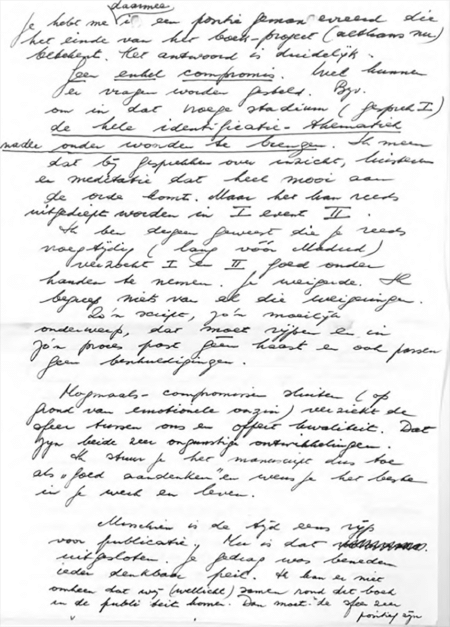 daarmee
Je hebt me in een positie gemanoevreerd die
het einde van het boek-project (althans nu)
betekent. Het antwoord is duidelijk.
Geen enkel compromis. Wel kunnen
er vragen worden gesteld. Bijv.
om in dat vroege stadium (gesprek I)
de hele identificatie-thematiek
nader onder woorden te brengen. Ik meen
dat bij gesprekken over inzicht, luisteren
en meditatie dat heel mooi aan
de orde komt. Maar het kan reeds
uitgediept worden in I event II.
Ik ben degeen geweest die je reeds
vroegtijdig (lang vóór Madrid)
verzocht I en II goed onder
handen te nemen. Je weigerde. Ik
begreep niets van al die weigeringen.
Zo'n script, zo'n moeilijk
onderwerp, dat moet rijpen en in
zo'n proces past geen haast en ook passen
geen beschuldigingen.
Nogmaals - compromissen sluiten (op
grond van emotionele onzin) verziekt de
sfeer tussen ons en offert kwaliteit. Dat
zijn beide zeer ongunstige ontwikkelingen.
Ik stuur je het manuscript dus toe
als "goed aandenken" en wens je het beste
in je werk en leven.
Misschien is de tijd eens rijp
voor publicatie. Nu is dat
uitgesloten. Je gedrag was beneden
ieder denkbaar peil. Ik kan er niet
omheen dat wij (wellicht) samen rond dit boek
in de publiciteit komen. Dan moet de sfeer zeer
positief zijn